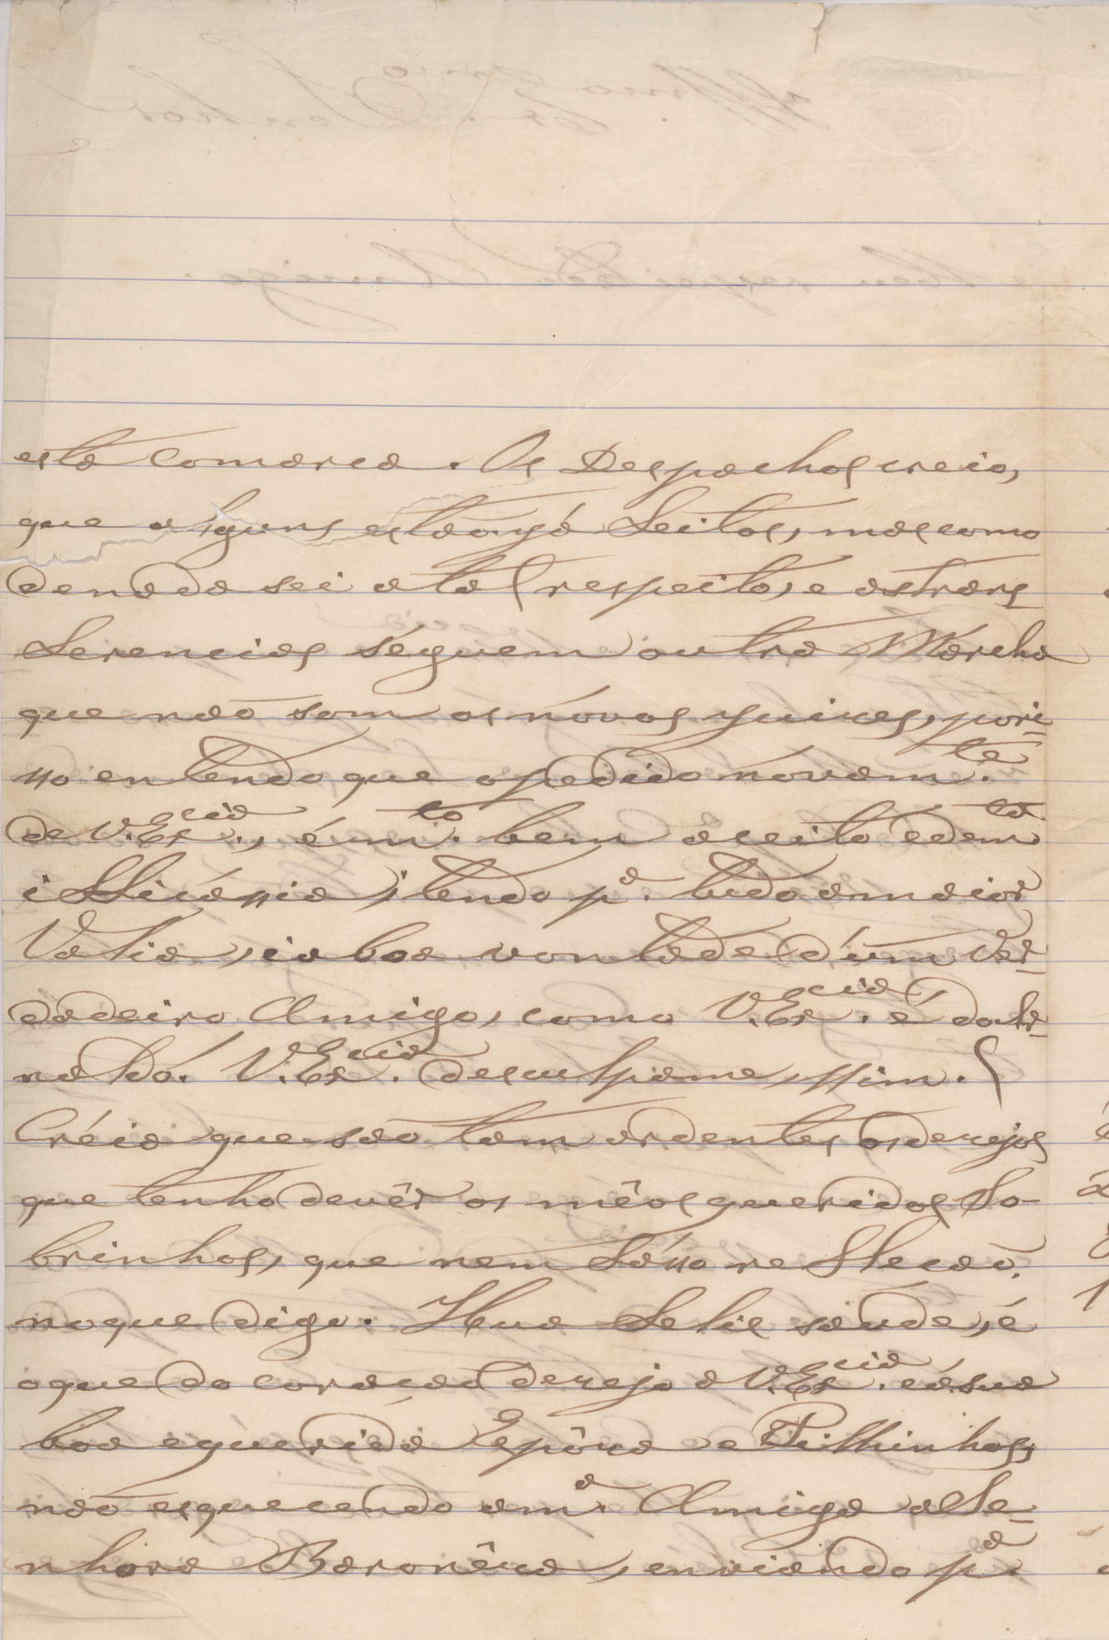 esta Comarca. Os Despachos creio,
que alguns estão já feitos, mas como
de nada sei a tal respeito, e as trans-
ferencias séguem outra Marcha
que não som os nóvos juizes, pori-
sso entendo que o pedido nóvam.te
de V. Ex.cia, é m.to bem aceito e dem.ta
i fficássia, tendo p.a tudo a maior
Valia, i a boa vontade d'úm Ver-
dadeiro Amigo, como V. Ex.cia é do Ar-
naldó. V. Ex.cia desculpame, ssim.
Créia que são tam ardentes os dezejos
que tenho de vêr os mêos queridos So-
brinhos, que nem Só sso reflecão
no que digo. Hua Felis saúde, é
o que do coração dezejo a V. Ex.cia e á sua
boa e querida Espôza e Filhinhos,
não esquecendo a m.a Amiga a Se-
nhora Baronêza, enviando p.a